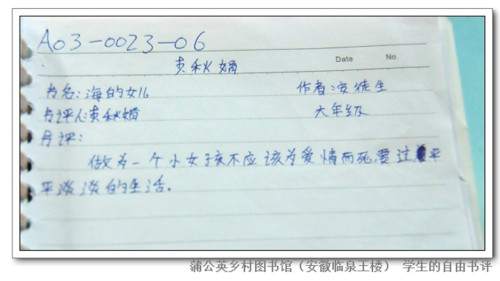 A03-0023-06
袁秋娟
Date No.
书名:海的女儿 作者:安徒生
书评人:袁秋娟 六年级
书评:
做为一个小女孩不应该为爱情而死,要过平
平淡淡的生活。
蒲公英乡村图书馆(安徽临泉王楼) 学生的自由书评